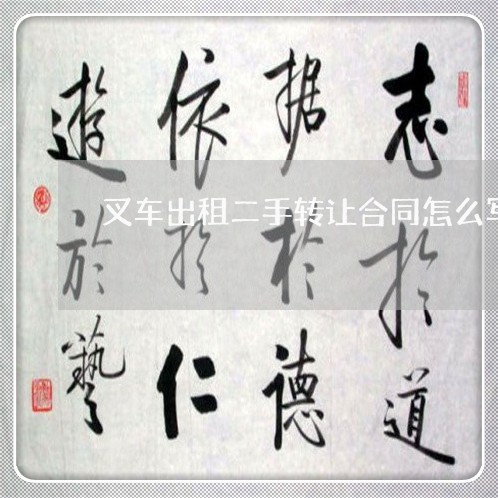 志於道
据於德
依於仁
遊於藝
叉车出租二手转让合同怎么